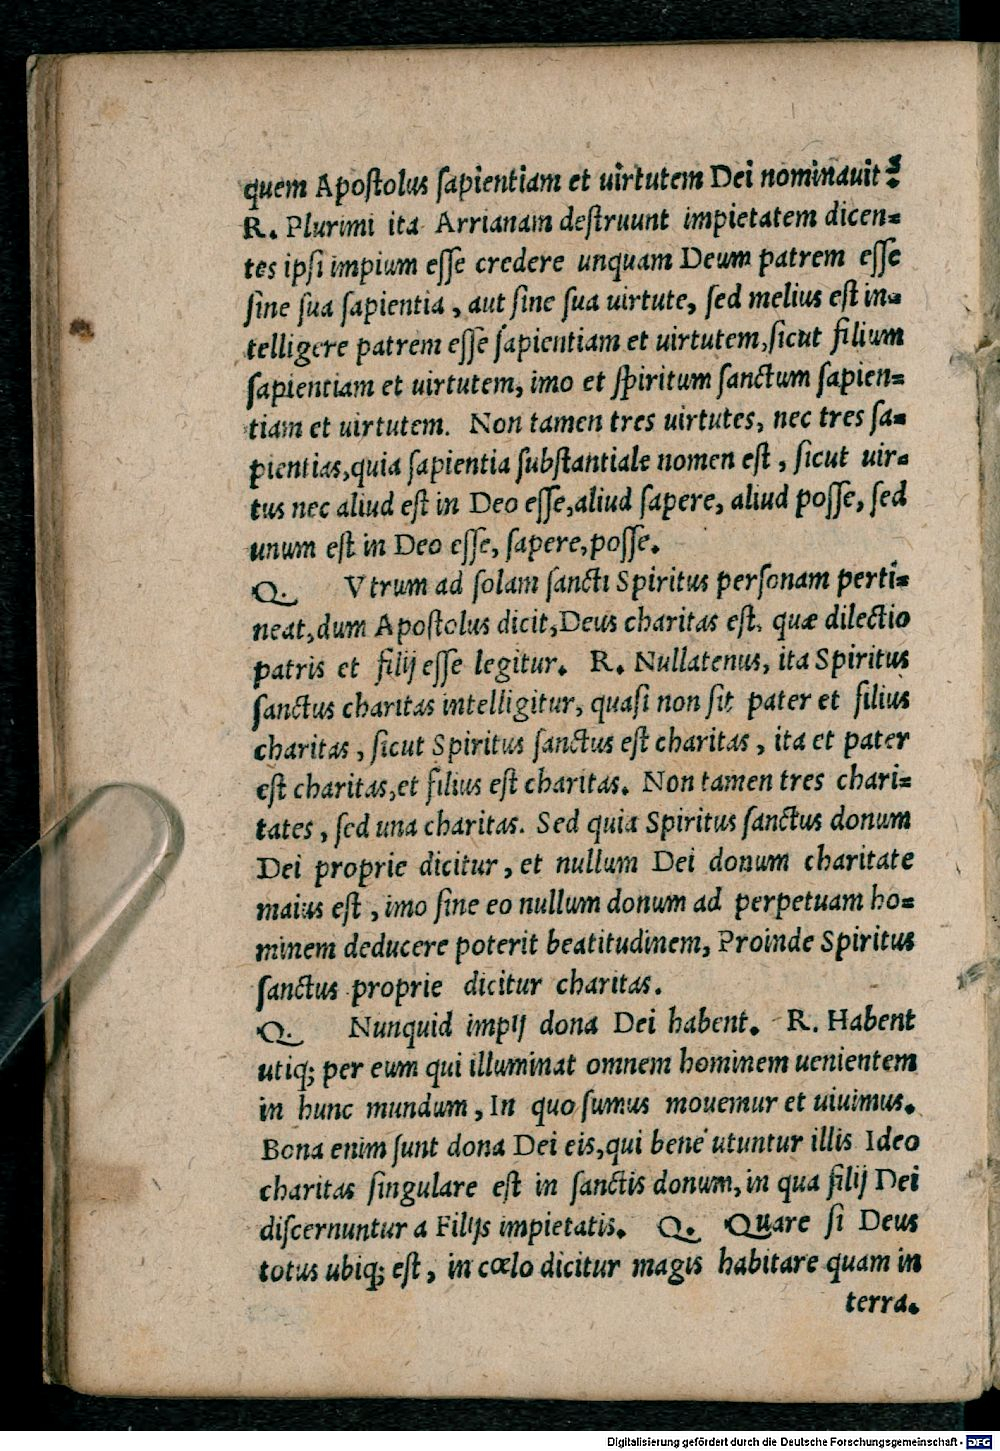 quem Apoſtolus ſapientiam et uirtutem Dei nominauit?
R. Plurimi ita Arrianam deſtruunt impietatem dicen=
tes ipſi impium eſſe credere unquam Deum patrem eſſe
ſine ſua ſapientia, aut ſine ſua uirtute, ſed melius eſt in=
telligere patrem eſſe ſapientiam et uirtutem, ſicut filium
ſapientiam et uirtutem, imo et ſpiritum ſanctum ſapien=
tiam et uirtutem. Non tamen tres uirtutes, nec tres ſa=
pientias, quia ſapientia ſubſtantiale nomen eſt, ſicut uir=
tus nec aliud eſt in Deo eſſe, aliud ſapere, aliud poſſe, ſed
unum eſt in Deo eſſe, ſapere, poſſe.
Q. Vtrum ad ſolam ſancti Spiritus perſonam perti=
neat, dum Apoſtolus dicit, Deus charitas eſt, quæ dilectio
patris et filij eſſe legitur. R. Nullatenus, ita Spiritus
ſanctus charitas intelligitur, quaſi non ſit pater et filius
charitas, ſicut Spiritus ſanctus eſt charitas, ita et pater
eſt charitas, et filius eſt charitas. Non tamen tres chari=
tates, ſed una charitas. Sed quia Spiritus ſanctus donum
Dei proprie dicitur, et nullum Dei donum charitate
maius eſt, imo ſine eo nullum donum ad perpetuam ho=
minem deducere poterit beatitudinem, Proinde Spiritus
ſanctus proprie dicitur charitas.
Q. Nunquid impij dona Dei habent. R. Habent
utiq; per eum qui illuminat omnem hominem uenientem
in hunc mundum, In quo ſumus mouemur et uiuimus.
Bona enim ſunt dona Dei eis, qui bene utuntur illis Ideo
charitas ſingulare eſt in ſanctis donum, in qua filij Dei
diſcernuntur a Filijs impietatis. Q. Quare ſi Deus
totus ubiq; eſt, in cœlo dicitur magis habitare quam in
terra.
Digitalisierung gefördert durch die Deutsche Forschungsgemeinschaft - DFG